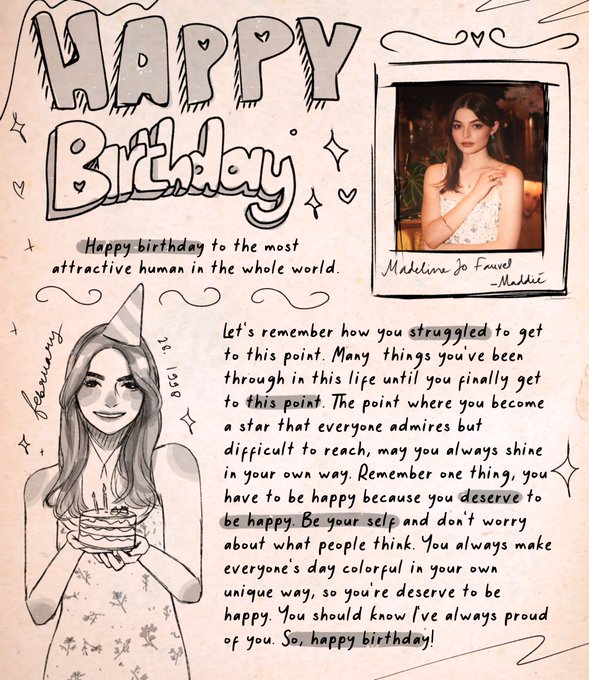 HAPPY
Birthday
Happy birthday to the most
attractive human in the whole world.
Madeline Jo Fauvel
-Maddie
february
28, 1998
Let's remember how you struggled to get
to this point. Many things you've been
through in this life until you finally get
to this point. The point where you become
a star that everyone admires but
difficult to reach, may you always shine
in your own way. Remember one thing, you
have to be happy because you deserve to
be happy. Be your self and don't worry
about what people think. You always make
everyone's day colorful in your own
unique way, so you're deserve to be
happy. You should know I've always proud
of you. So, happy birthday!